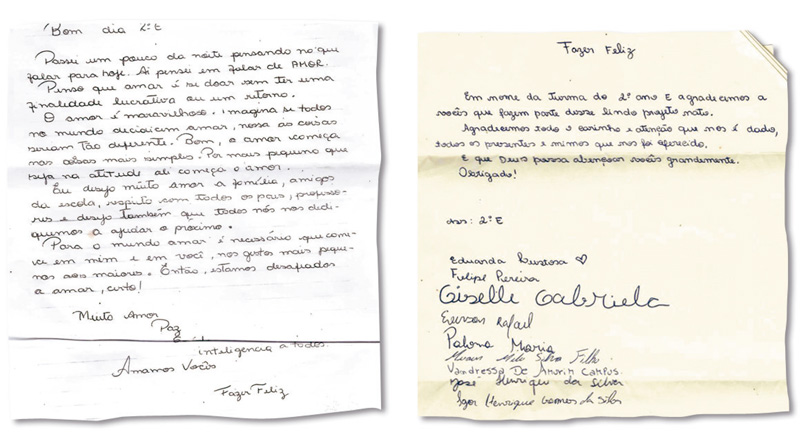 Bom dia 2º E
Passei um pouco da noite pensando no que
falar para hoje. Aí pensei em falar de AMOR.
Penso que amar é se doar sem ter uma
finalidade lucrativa ou um retorno.
O amor é maravilhoso. imagina se todos
no mundo decidicem amar, nossa as coisas
seriam tão diferente. Bom, o amor começa
nas coisas mais simples. Por mais pequeno que
seja na atitude ali começa o amor.
Eu desejo muito amor a família, amigos
da escola, respeito com todos os pais, professo-
res e desejo também que todos nós nos dedi-
quemos a ajudar o próximo.
Para o mundo amar é necessário que come-
ce em mim e em você, nos gestos mais peque-
nos aos maiores. Então, estamos desafiados
a amar, certo!
Muito Amor
Paz
inteligencia a todos.
Amamos Vocês
Fazer Feliz
Fazer Feliz
Em nome da turma do 2º ano E agradecemos a
vocês que fazem parte desse lindo projeto nato.
Agradecemos todo o carinho e atenção que nos é dado,
todos os presentes e mimos que nos foi oferecido.
E que Deus possa abençoar vocês grandemente.
Obrigado!
ass: 2º E
Eduarda Bustosa ♡
Felipe Pereira
Giselle Gabriela
Everson Rafael
Paloma Maria
Melo Silva Filho
Vandressa De Amorim Campus.
José Henrique da Silva
Igor Henrique Gomes da Silva